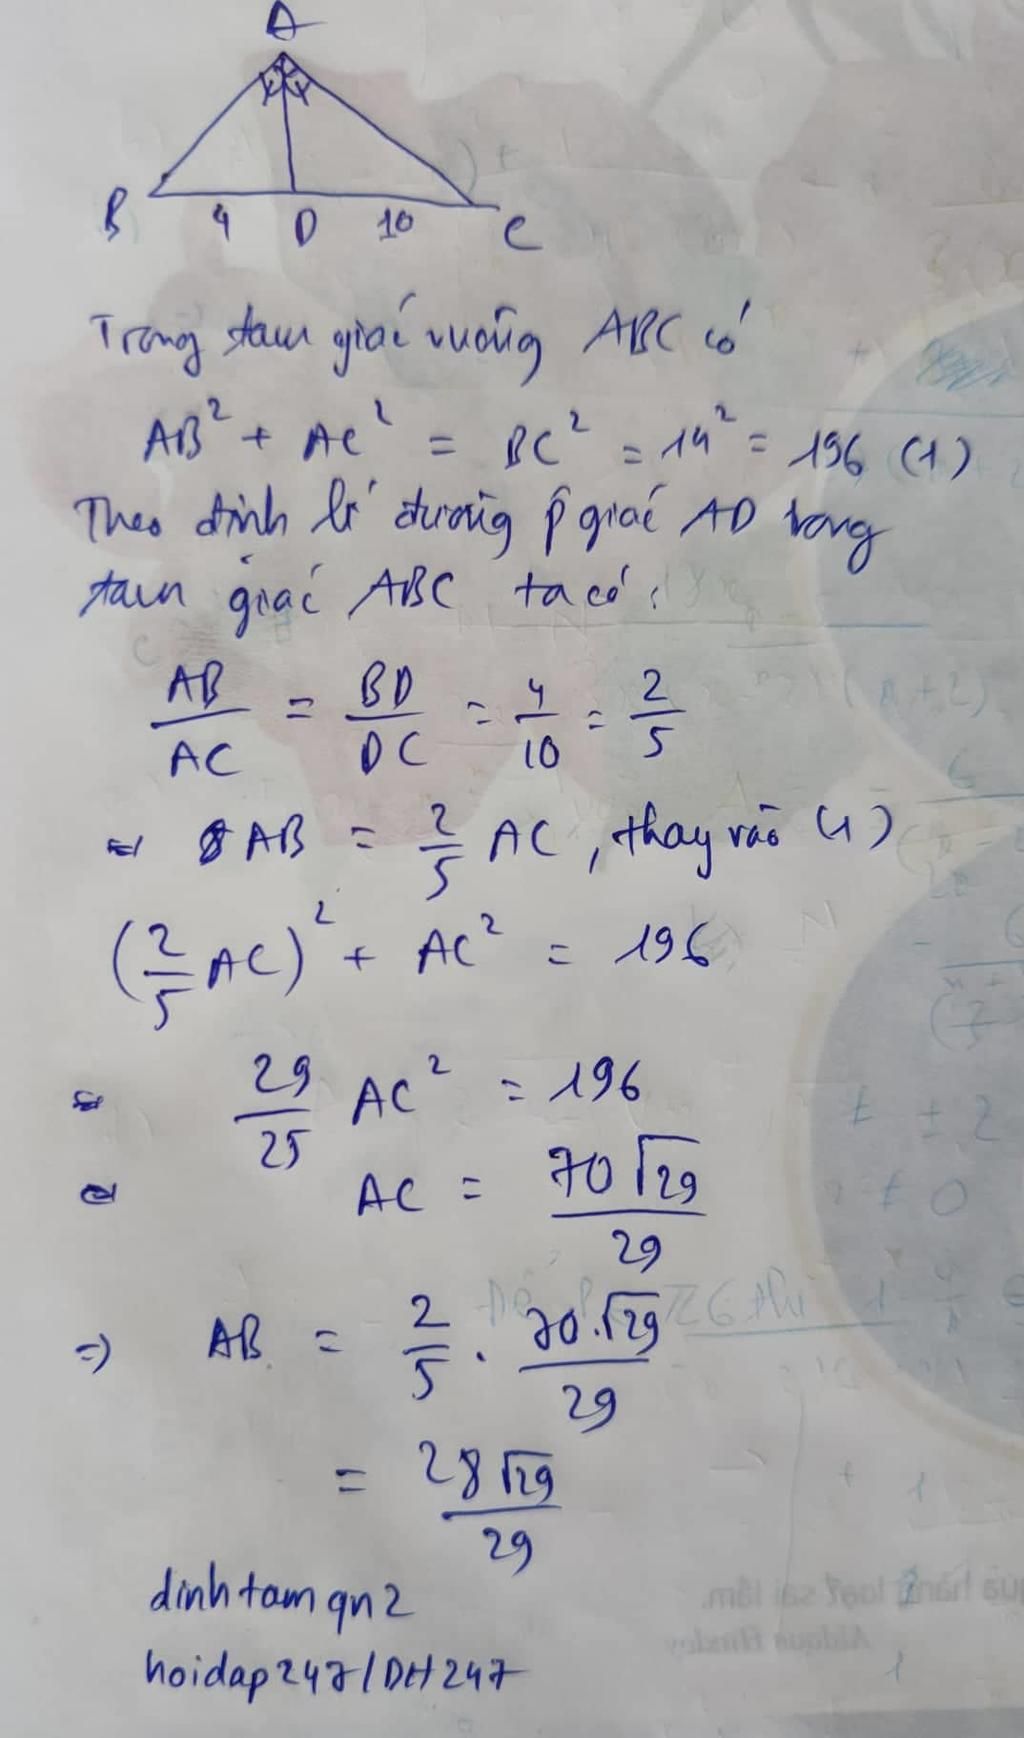 A
B 4 D 10 C
Trong tam giác vuông ABC có
AB² + AC² = BC² = 14² = 196 (1)
Theo định lí đường p giác AD trong
tam giác ABC ta có:
AB/AC = BD/DC = 4/10 = 2/5
⇒ AB = 2/5 AC, thay vào (1)
(2/5 AC)² + AC² = 196
⇔ 29/25 AC² = 196
⇔ AC = 70√29/29
⇒ AB = 2/5 . 70.√29/29
= 28√29/29
dinhtamqn2
hoidap247/DH247